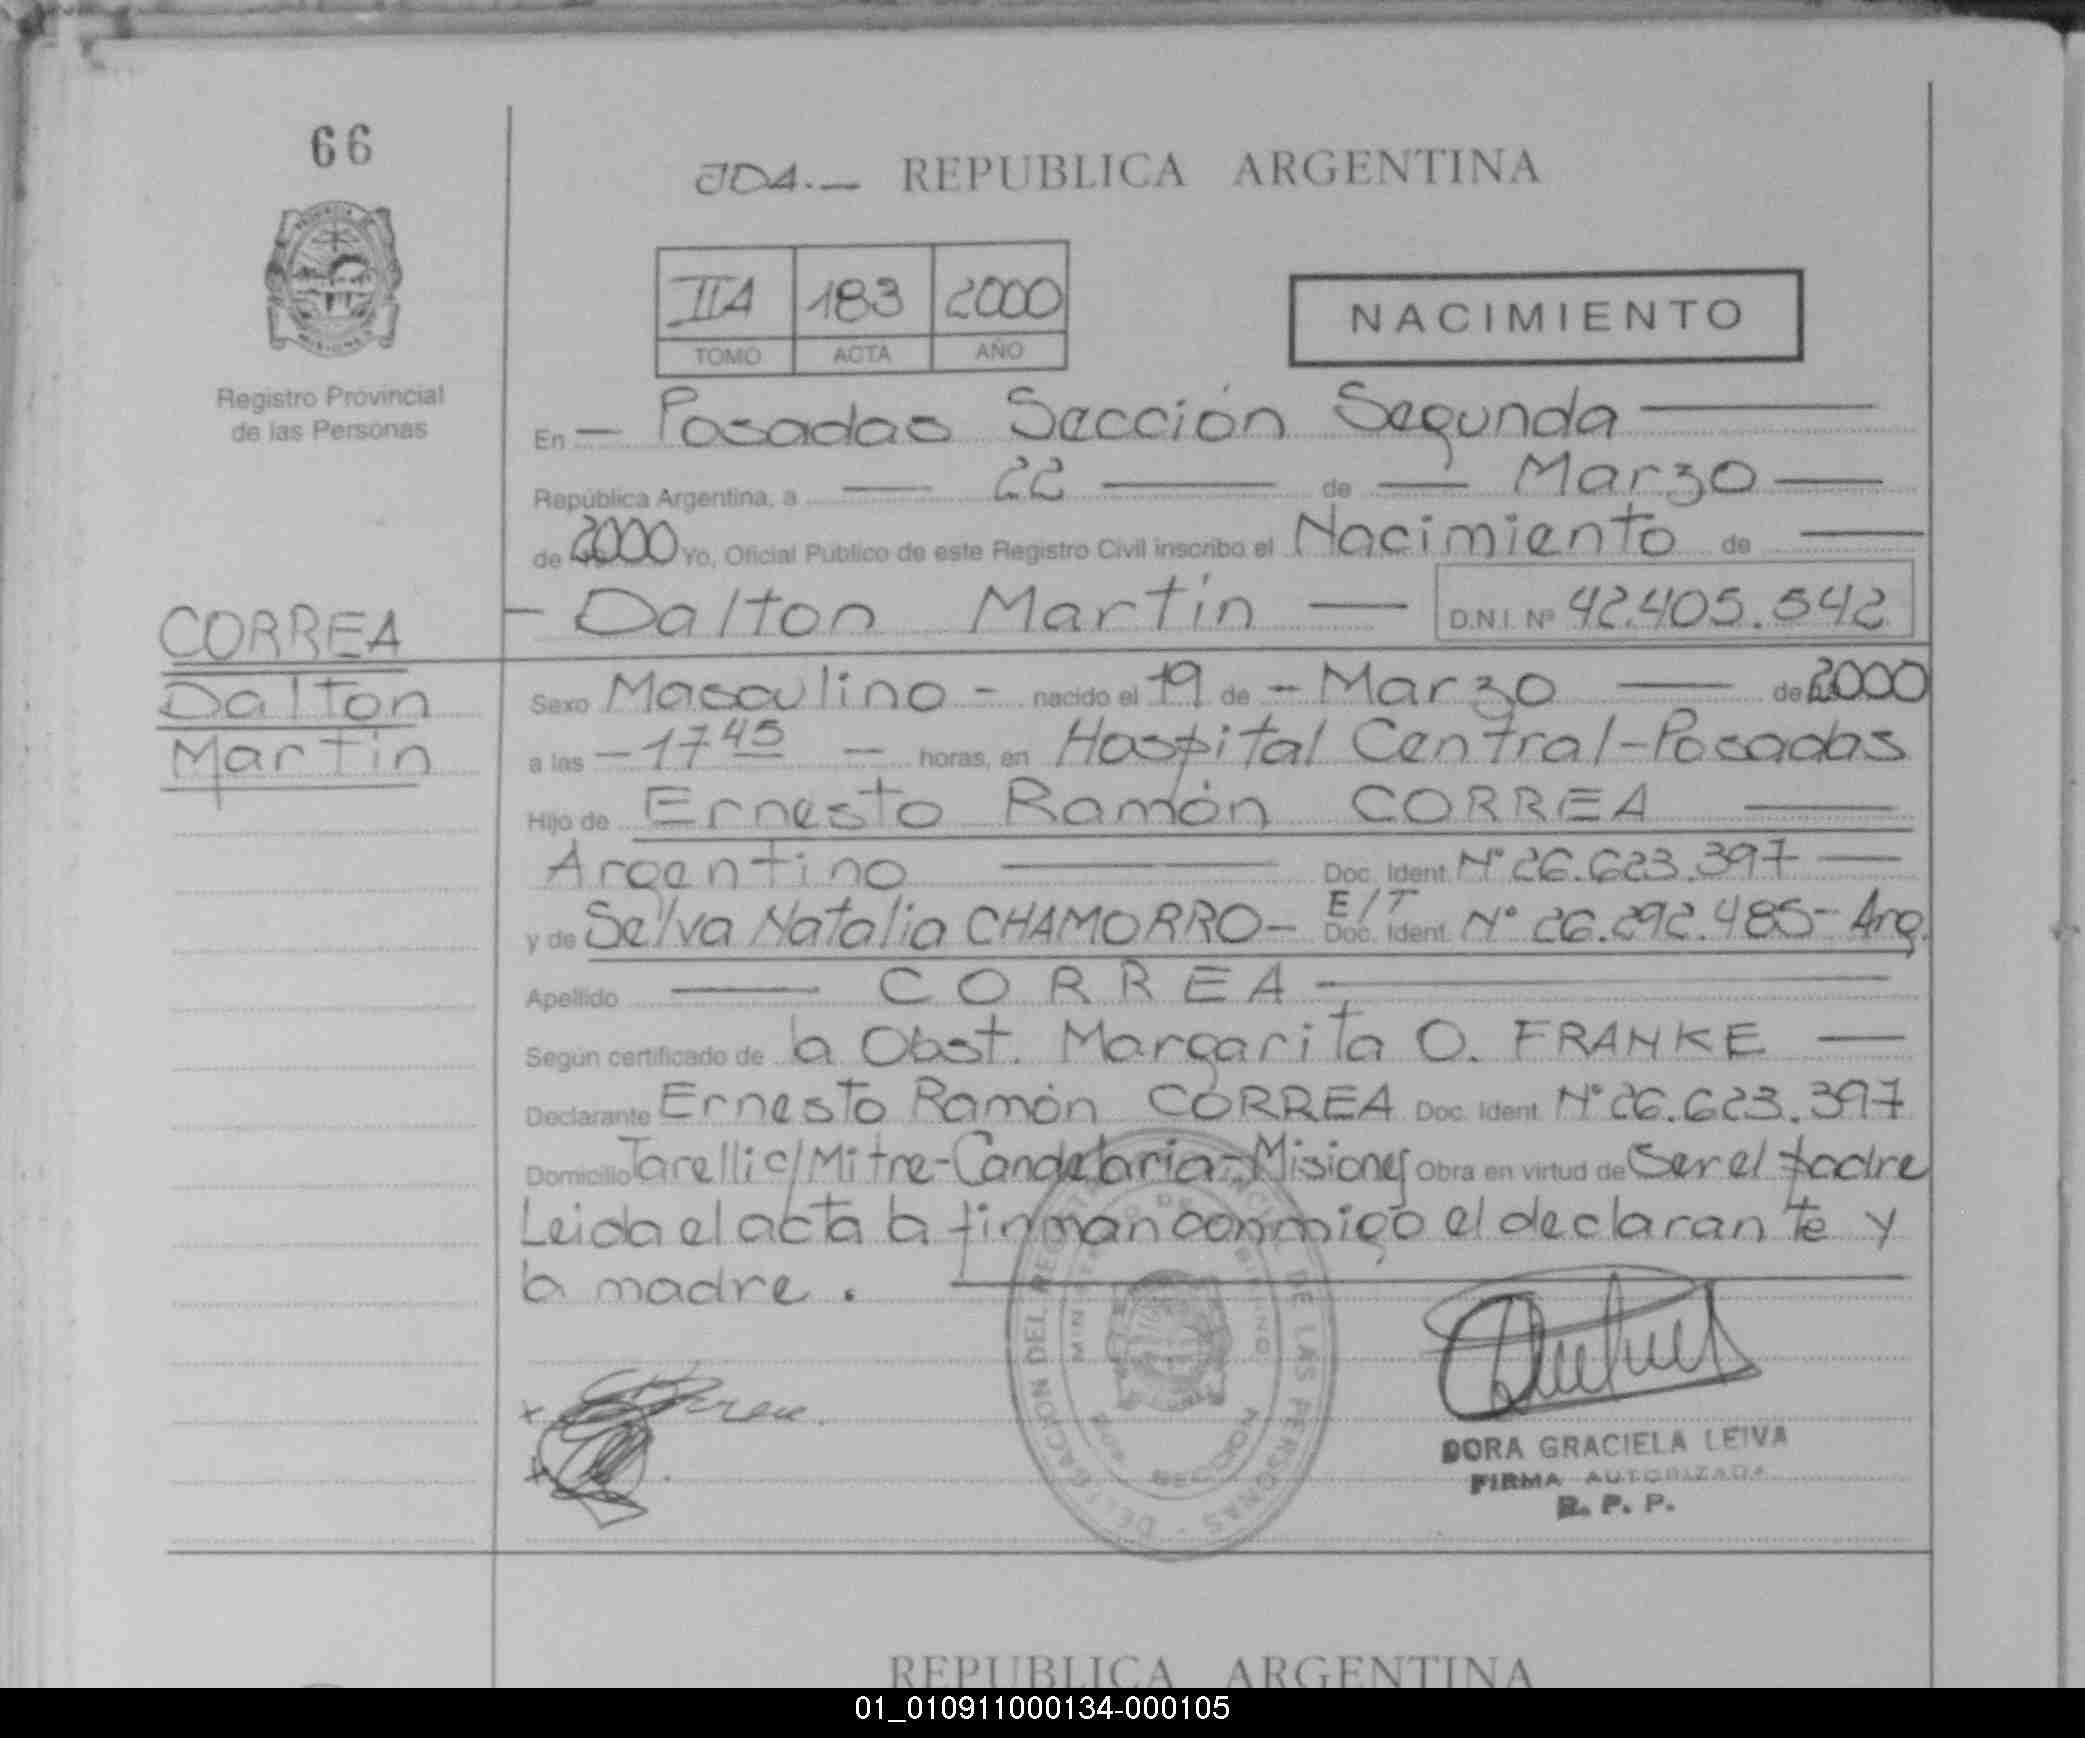 66
JDA.— REPUBLICA ARGENTINA
IIA 183 2000
TOMO ACTA AÑO
NACIMIENTO
Registro Provincial
de las Personas
En — Posadas Sección Segunda —
República Argentina, a — 22 — de — Marzo —
de 2000 Yo, Oficial Público de este Registro Civil inscribo el Nacimiento de —
— Dalton Martín — D.N.I. Nº 42.405.542
CORREA
Dalton
Martín
Sexo Masculino - nacido el 19 de - Marzo — de 2000
a las - 17 45 — horas, en Hospital Central-Posadas
Hijo de Ernesto Ramón CORREA —
Argentino — Doc. Ident. Nº 26.623.397 —
E/T
y de Selva Natalia CHAMORRO- Doc. Ident. Nº 26.292.485- Arg.
Apellido — CORREA —
Según certificado de la Obst. Margarita O. FRANKE —
Declarante Ernesto Ramón CORREA Doc. Ident. Nº 26.623.397
Domicilio Tarelli c/Mitre-Candelaria-Misiones Obra en virtud de Ser el padre
Leida el acta la firman conmigo el declarante y
la madre.
DELEGACION DEL REGISTRO PROVINCIAL DE LAS PERSONAS
DORA GRACIELA LEIVA
FIRMA AUTORIZADA
R. P. P.
REPUBLICA ARGENTINA
01_010911000134-000105